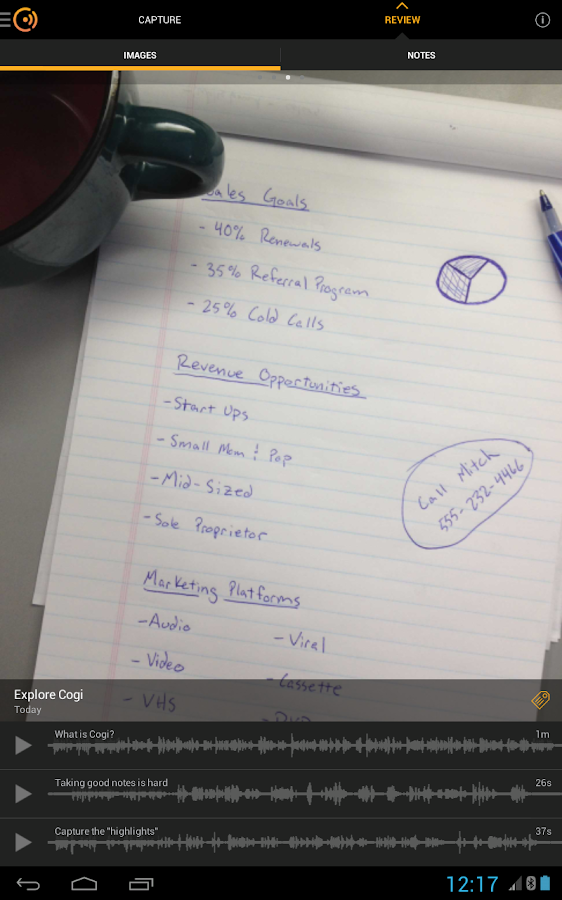 CAPTURE
REVIEW
IMAGES
NOTES
Sales Goals
- 40% Renewals
- 35% Referral Program
- 25% Cold Calls
Revenue Opportunities
- Start Ups
- Small Mom & Pop
- Mid-Sized
- Sole Proprietor
Call Mitch
555-232-4466
Marketing Platforms
- Audio
- Viral
- Video
- Cassette
- VHS
- DVD
Explore Cogi
Today
What is Cogi?
1m
Taking good notes is hard
26s
Capture the "highlights"
37s
12:17